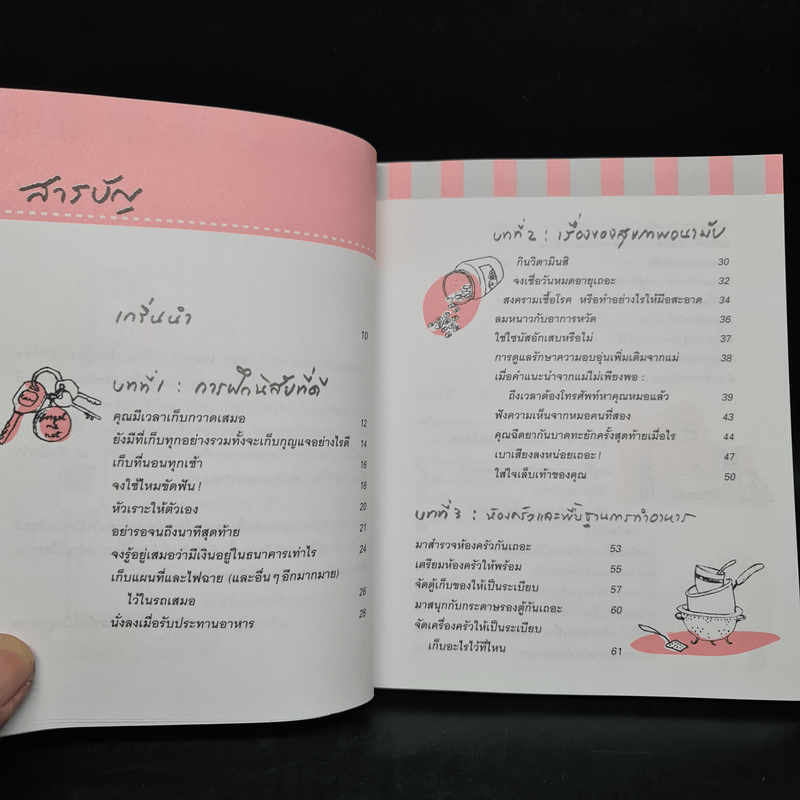 สารบัญ
เกริ่นนำ 10
บทที่ 1 : การฝึกนิสัยที่ดี
คุณมีเวลาเก็บกวาดเสมอ 12
ยังมีที่เก็บทุกอย่างรวมทั้งจะเก็บกุญแจอย่างไรดี 14
เก็บที่นอนทุกเช้า 16
จงใช้ไหมขัดฟัน ! 18
หัวเราะให้ตัวเอง 20
อย่ารอจนถึงนาทีสุดท้าย 21
จงรู้อยู่เสมอว่ามีเงินอยู่ในธนาคารเท่าไร 24
เก็บแผนที่และไฟฉาย (และอื่น ๆ อีกมากมาย)
ไว้ในรถเสมอ 26
นั่งลงเมื่อรับประทานอาหาร 28
forget me not
บทที่ 2 : เรื่องของสุขภาพอนามัย
กินวิตามินสิ 30
จงเชื่อวันหมดอายุเถอะ 32
สงครามเชื้อโรค หรือทำอย่างไรให้มือสะอาด 34
ลมหนาวกับอาการหวัด 36
ใช่ไซนัสอักเสบหรือไม่ 37
การดูแลรักษาความอบอุ่นเพิ่มเติมจากแม่ 38
เมื่อคำแนะนำจากแม่ไม่เพียงพอ :
ถึงเวลาต้องโทรศัพท์หาคุณหมอแล้ว 39
ฟังความเห็นจากหมอคนที่สอง 43
คุณฉีดยากันบาดทะยักครั้งสุดท้ายเมื่อไร 44
เบาเสียงลงหน่อยเถอะ ! 47
ใส่ใจเล็บเท้าของคุณ 50
บทที่ 3 : ห้องครัวและพื้นฐานการทำอาหาร
มาสำรวจห้องครัวกันเถอะ 53
เตรียมห้องครัวให้พร้อม 55
จัดตู้เก็บของให้เป็นระเบียบ 57
มาสนุกกับกระดาษรองตู้กันเถอะ 60
จัดเครื่องครัวให้เป็นระเบียบ
เก็บอะไรไว้ที่ไหน 61